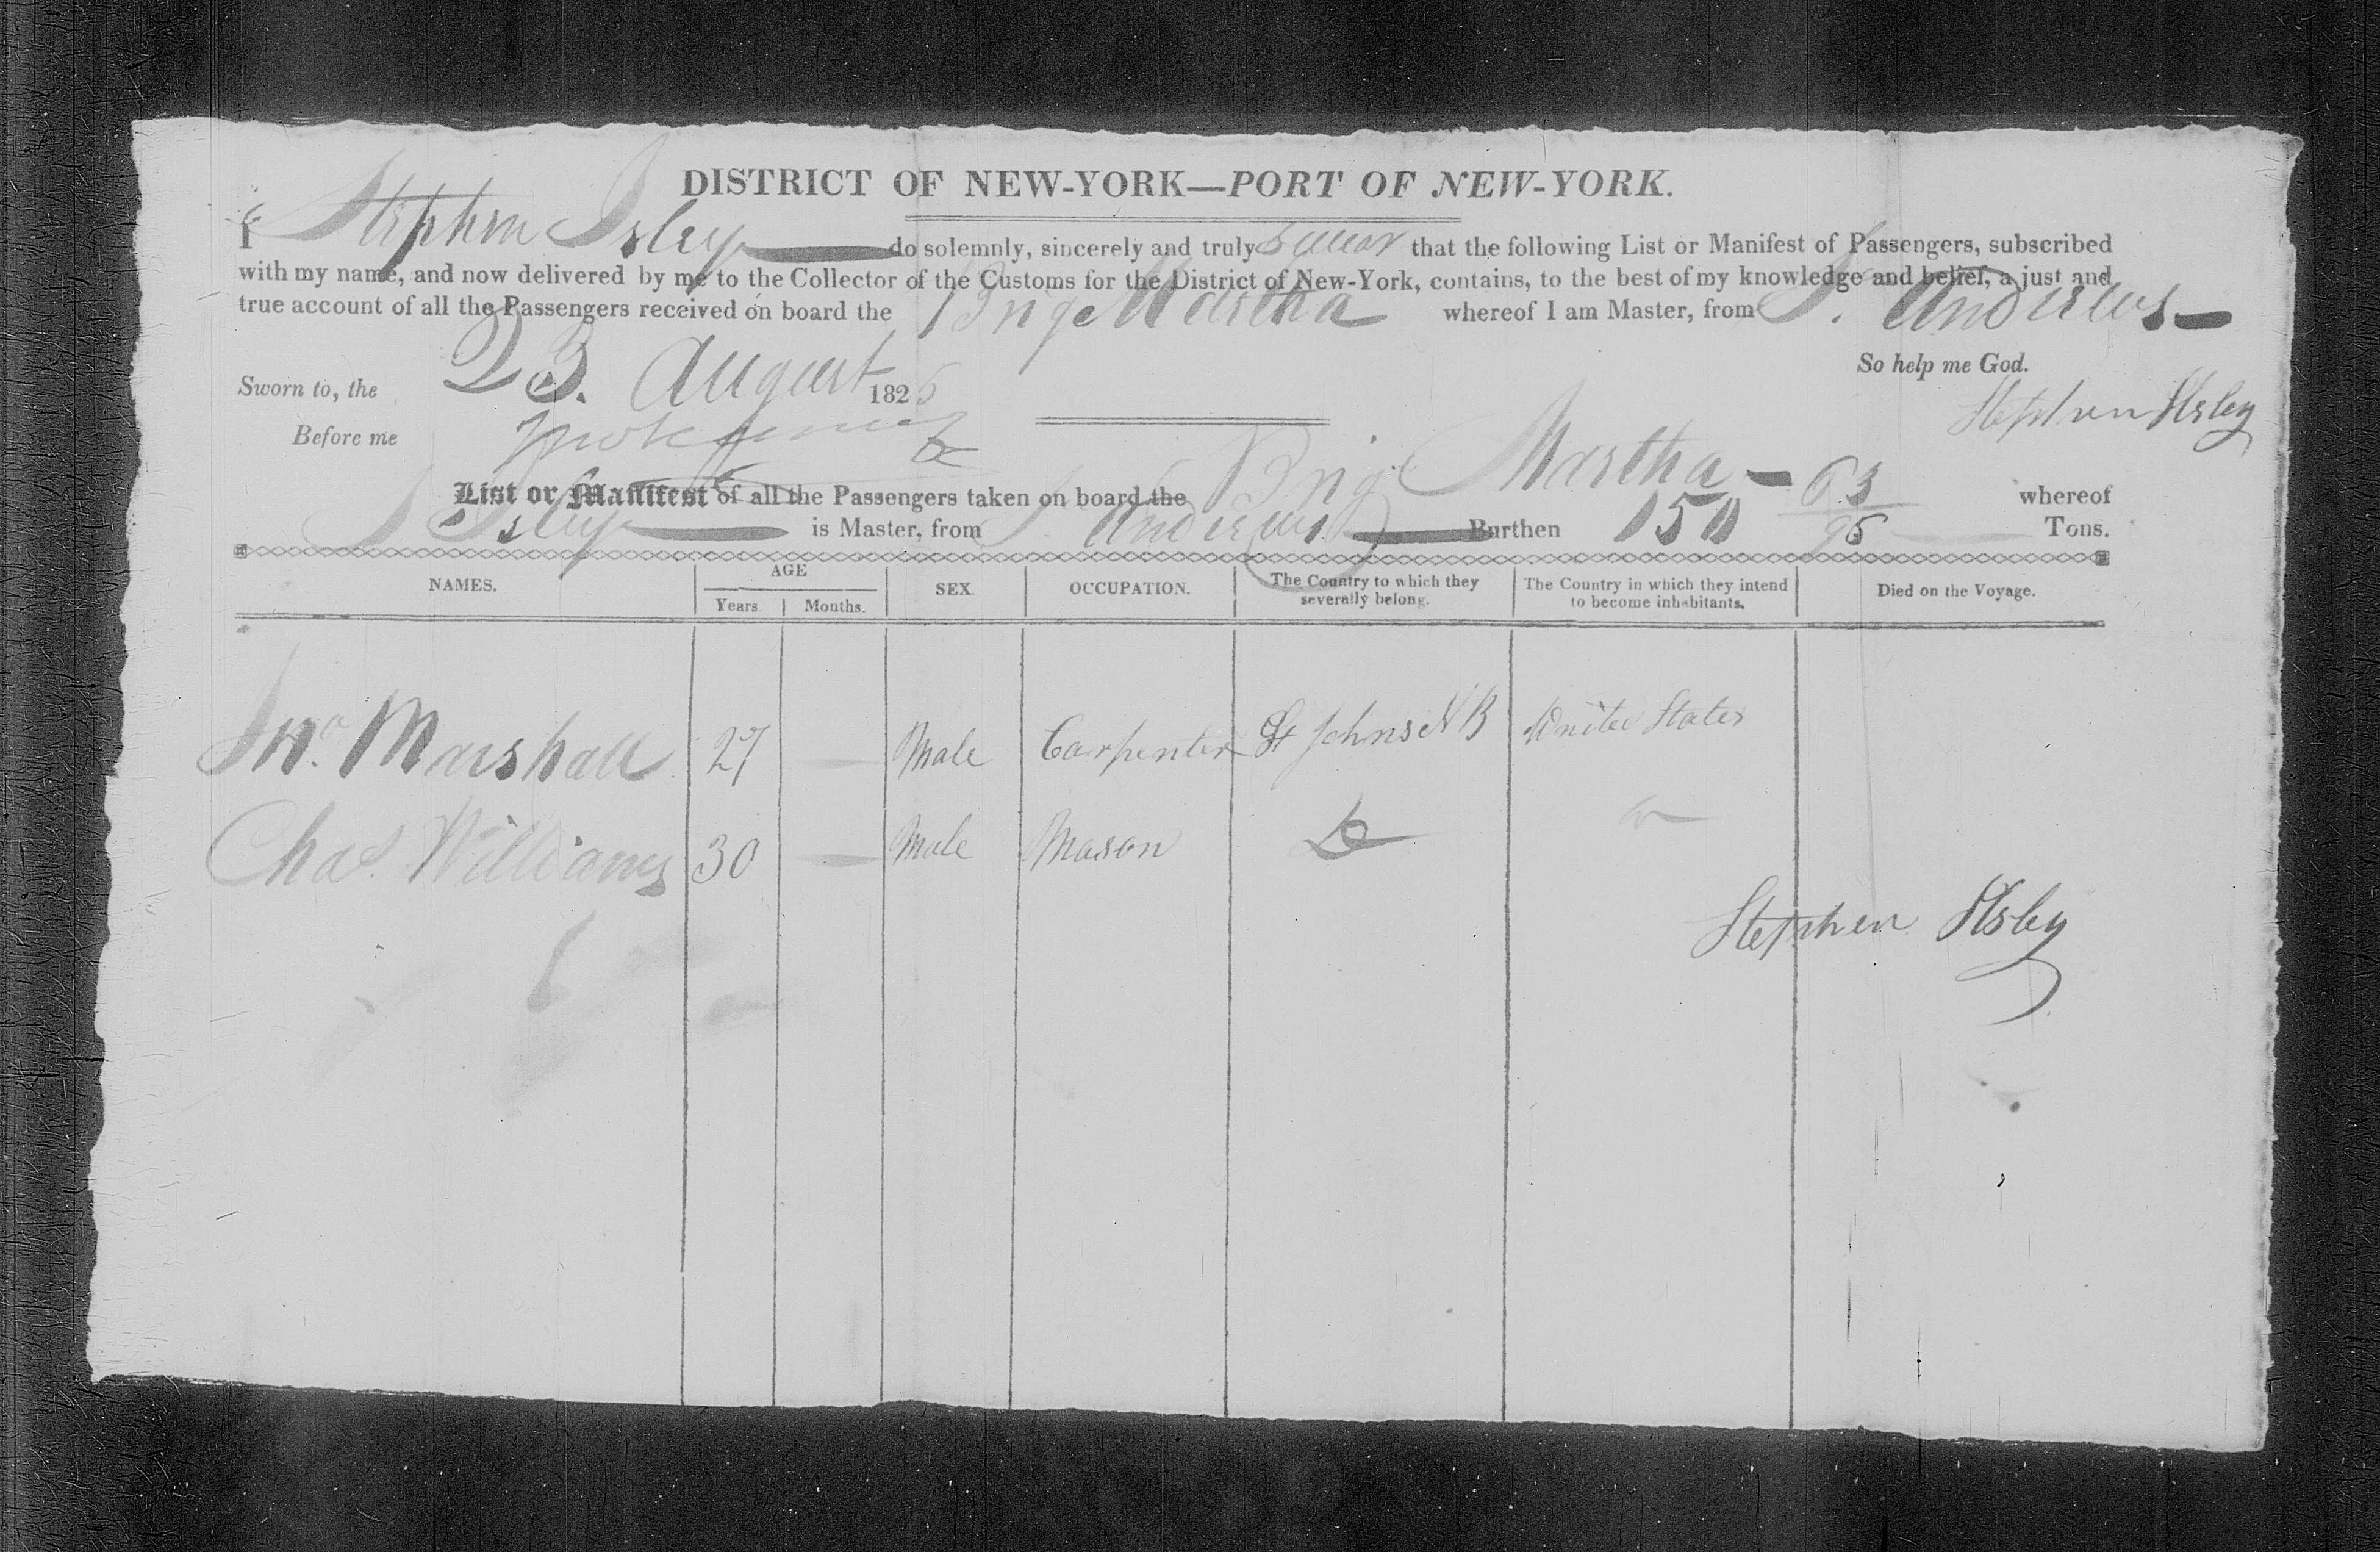 DISTRICT OF NEW-YORK—PORT OF NEW-YORK.
I Stephen Ilsley do solemnly, sincerely and truly Swear that the following List or Manifest of Passengers, subscribed
with my name, and now delivered by me to the Collector of the Customs for the District of New-York, contains, to the best of my knowledge and belief, a just and
true account of all the Passengers received on board the Brig Martha whereof I am Master, from St. Andrews
So help me God.
Sworn to, the 23. August 1825
Stephen Ilsley
Before me
List or Manifest of all the Passengers taken on board the Brig Martha whereof
S Ilsley is Master, from St. Andrews Burthen 150 63/95 Tons.
NAMES. AGE SEX. OCCUPATION. The Country to which they severally belong. The Country in which they intend to become inhabitants. Died on the Voyage.
Years. Months.
Jno. Marshall 27 — Male Carpenter St Johns N B United States
Chas. Williams 30 — Male Mason Do Do
Stephen Ilsley